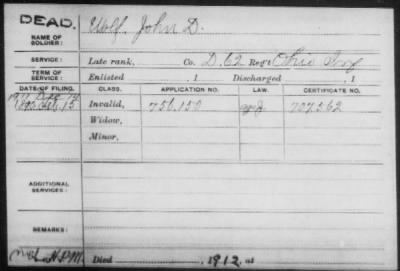 DEAD.
NAME OF SOLDIER: Wolf, John D.
SERVICE: Late rank, Co. D. 62 Reg't Ohio Inf
TERM OF SERVICE: Enlisted , 1 Discharged , 1
DATE OF FILING. CLASS. APPLICATION NO. LAW. CERTIFICATE NO.
Invalid, 756.150 707562
Widow,
Minor,
ADDITIONAL SERVICES:
REMARKS:
Died , 1912, at